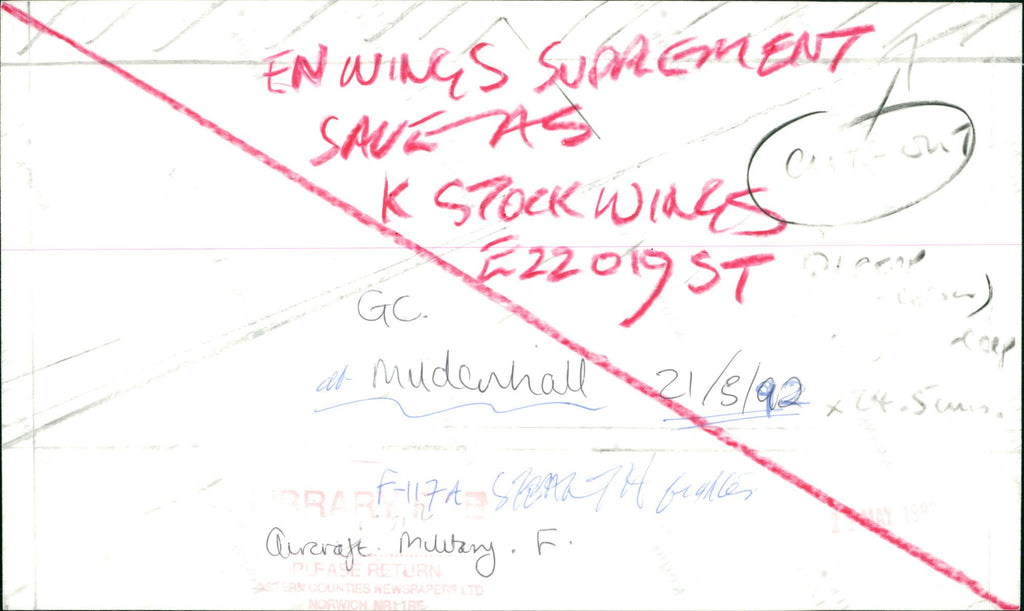 EN WINGS SUPPLEMENT
SAVE AS
K STOCK WINGS
CUT-OUT
E22019 ST
GC.
at Mildenhall 21/5/92
x 24.5cms.
F-117A STEALTH fighter
LIBRARY
MAY 199
Aircraft. Military. F.
PLEASE RETURN
EASTERN COUNTIES NEWSPAPERS LTD
NORWICH NR1 1RE